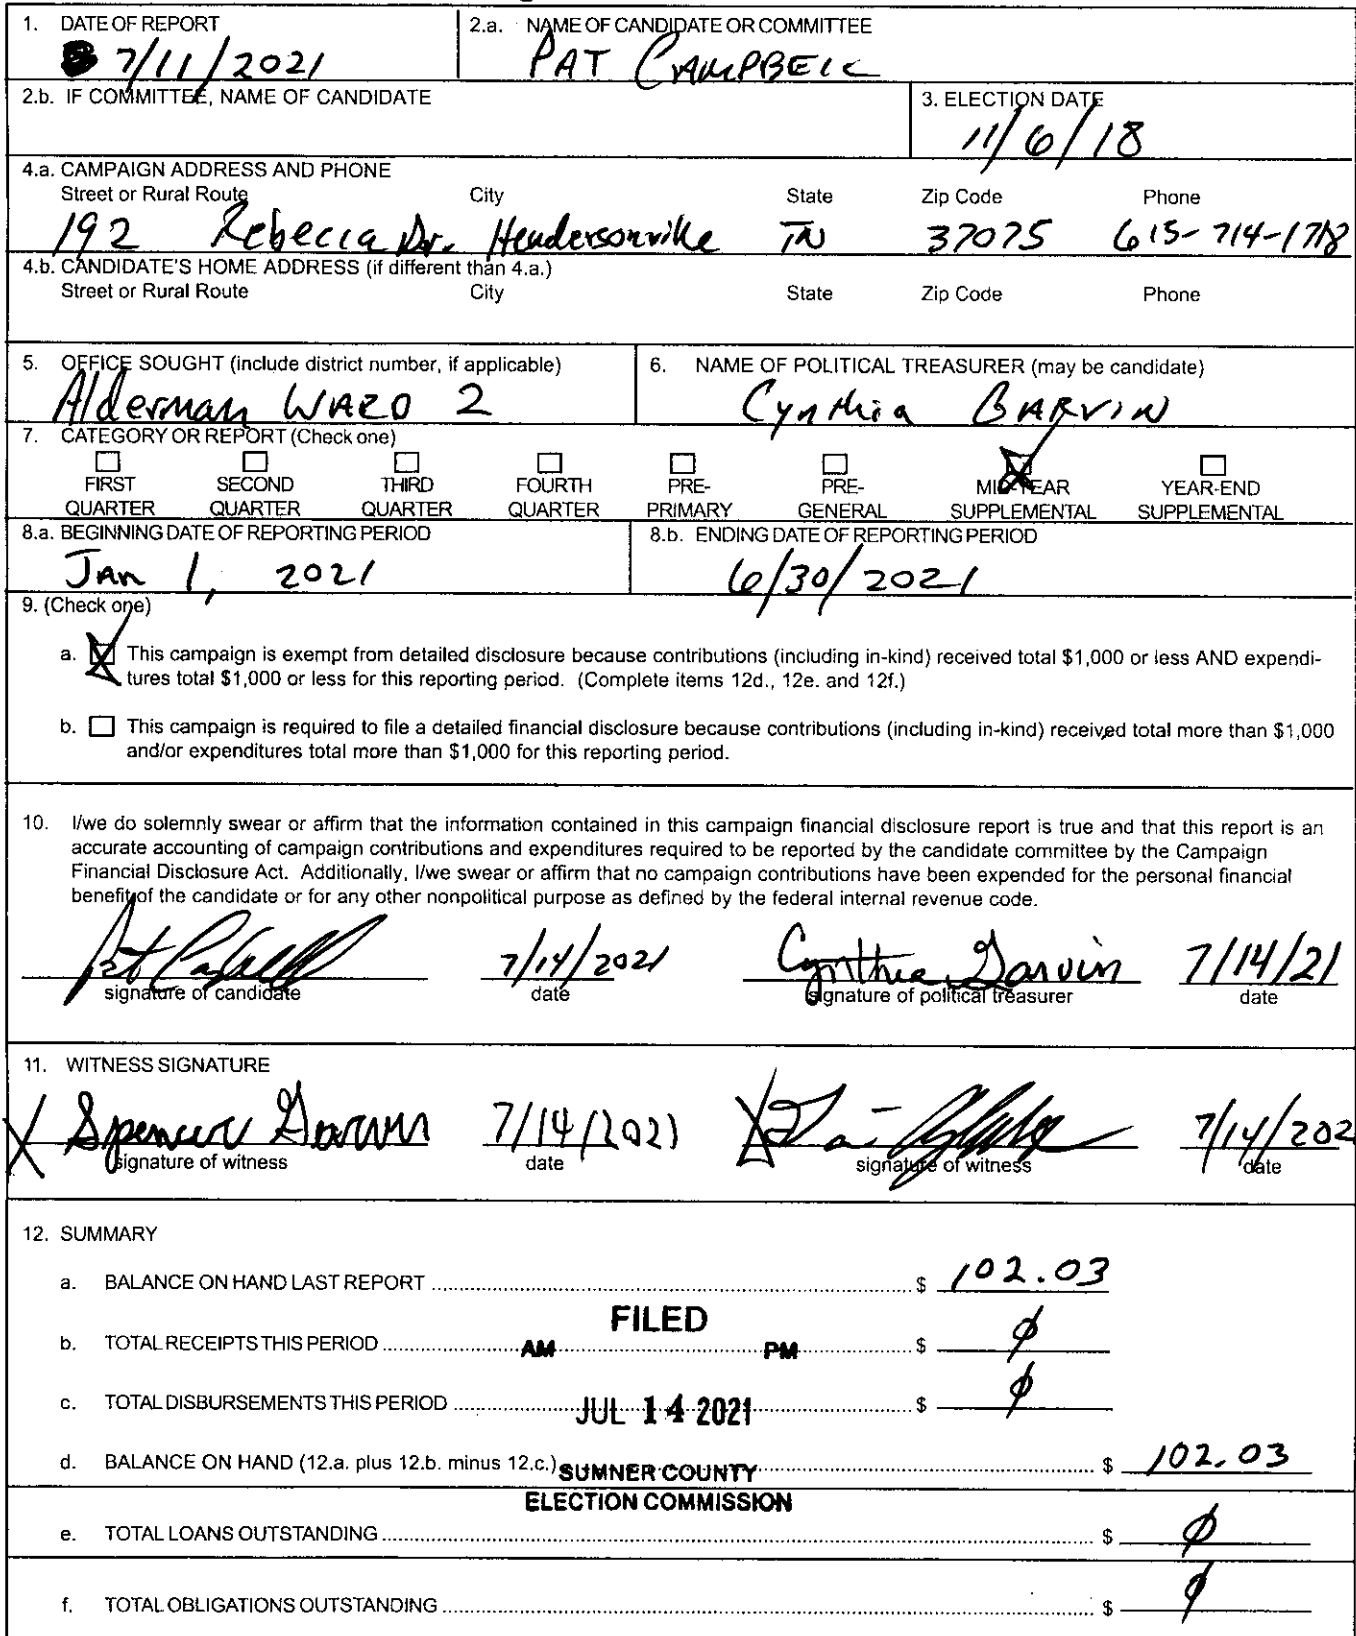 1. DATE OF REPORT
7/11/2021
2.a. NAME OF CANDIDATE OR COMMITTEE
PAT CAMPBELL
2.b. IF COMMITTEE, NAME OF CANDIDATE
3. ELECTION DATE
11/6/18
4.a. CAMPAIGN ADDRESS AND PHONE
Street or Rural Route City State Zip Code Phone
192 Rebecca Dr. Hendersonville TN 37075 615-714-1718
4.b. CANDIDATE'S HOME ADDRESS (if different than 4.a.)
Street or Rural Route City State Zip Code Phone
5. OFFICE SOUGHT (include district number, if applicable)
Alderman WARD 2
6. NAME OF POLITICAL TREASURER (may be candidate)
Cynthia GARVIN
7. CATEGORY OR REPORT (Check one)
FIRST SECOND THIRD FOURTH PRE- PRE- MID-YEAR YEAR-END
QUARTER QUARTER QUARTER QUARTER PRIMARY GENERAL SUPPLEMENTAL SUPPLEMENTAL
8.a. BEGINNING DATE OF REPORTING PERIOD
JAN 1, 2021
8.b. ENDING DATE OF REPORTING PERIOD
6/30/2021
9. (Check one)
a. This campaign is exempt from detailed disclosure because contributions (including in-kind) received total $1,000 or less AND expendi-
tures total $1,000 or less for this reporting period. (Complete items 12d., 12e. and 12f.)
b. This campaign is required to file a detailed financial disclosure because contributions (including in-kind) received total more than $1,000
and/or expenditures total more than $1,000 for this reporting period.
10. I/we do solemnly swear or affirm that the information contained in this campaign financial disclosure report is true and that this report is an
accurate accounting of campaign contributions and expenditures required to be reported by the candidate committee by the Campaign
Financial Disclosure Act. Additionally, I/we swear or affirm that no campaign contributions have been expended for the personal financial
benefit of the candidate or for any other nonpolitical purpose as defined by the federal internal revenue code.
Pat Campbell 7/14/2021 Cynthia Garvin 7/14/21
signature of candidate date signature of political treasurer date
11. WITNESS SIGNATURE
X Spencer Garvin 7/14/2021 X 7/14/202
signature of witness date signature of witness date
12. SUMMARY
a. BALANCE ON HAND LAST REPORT $ 102.03
FILED
b. TOTAL RECEIPTS THIS PERIOD AM PM $ ϕ
c. TOTAL DISBURSEMENTS THIS PERIOD JUL 14 2021 $ ϕ
d. BALANCE ON HAND (12.a. plus 12.b. minus 12.c.) SUMNER COUNTY $ 102.03
ELECTION COMMISSION
e. TOTAL LOANS OUTSTANDING $ ϕ
f. TOTAL OBLIGATIONS OUTSTANDING $ ϕ